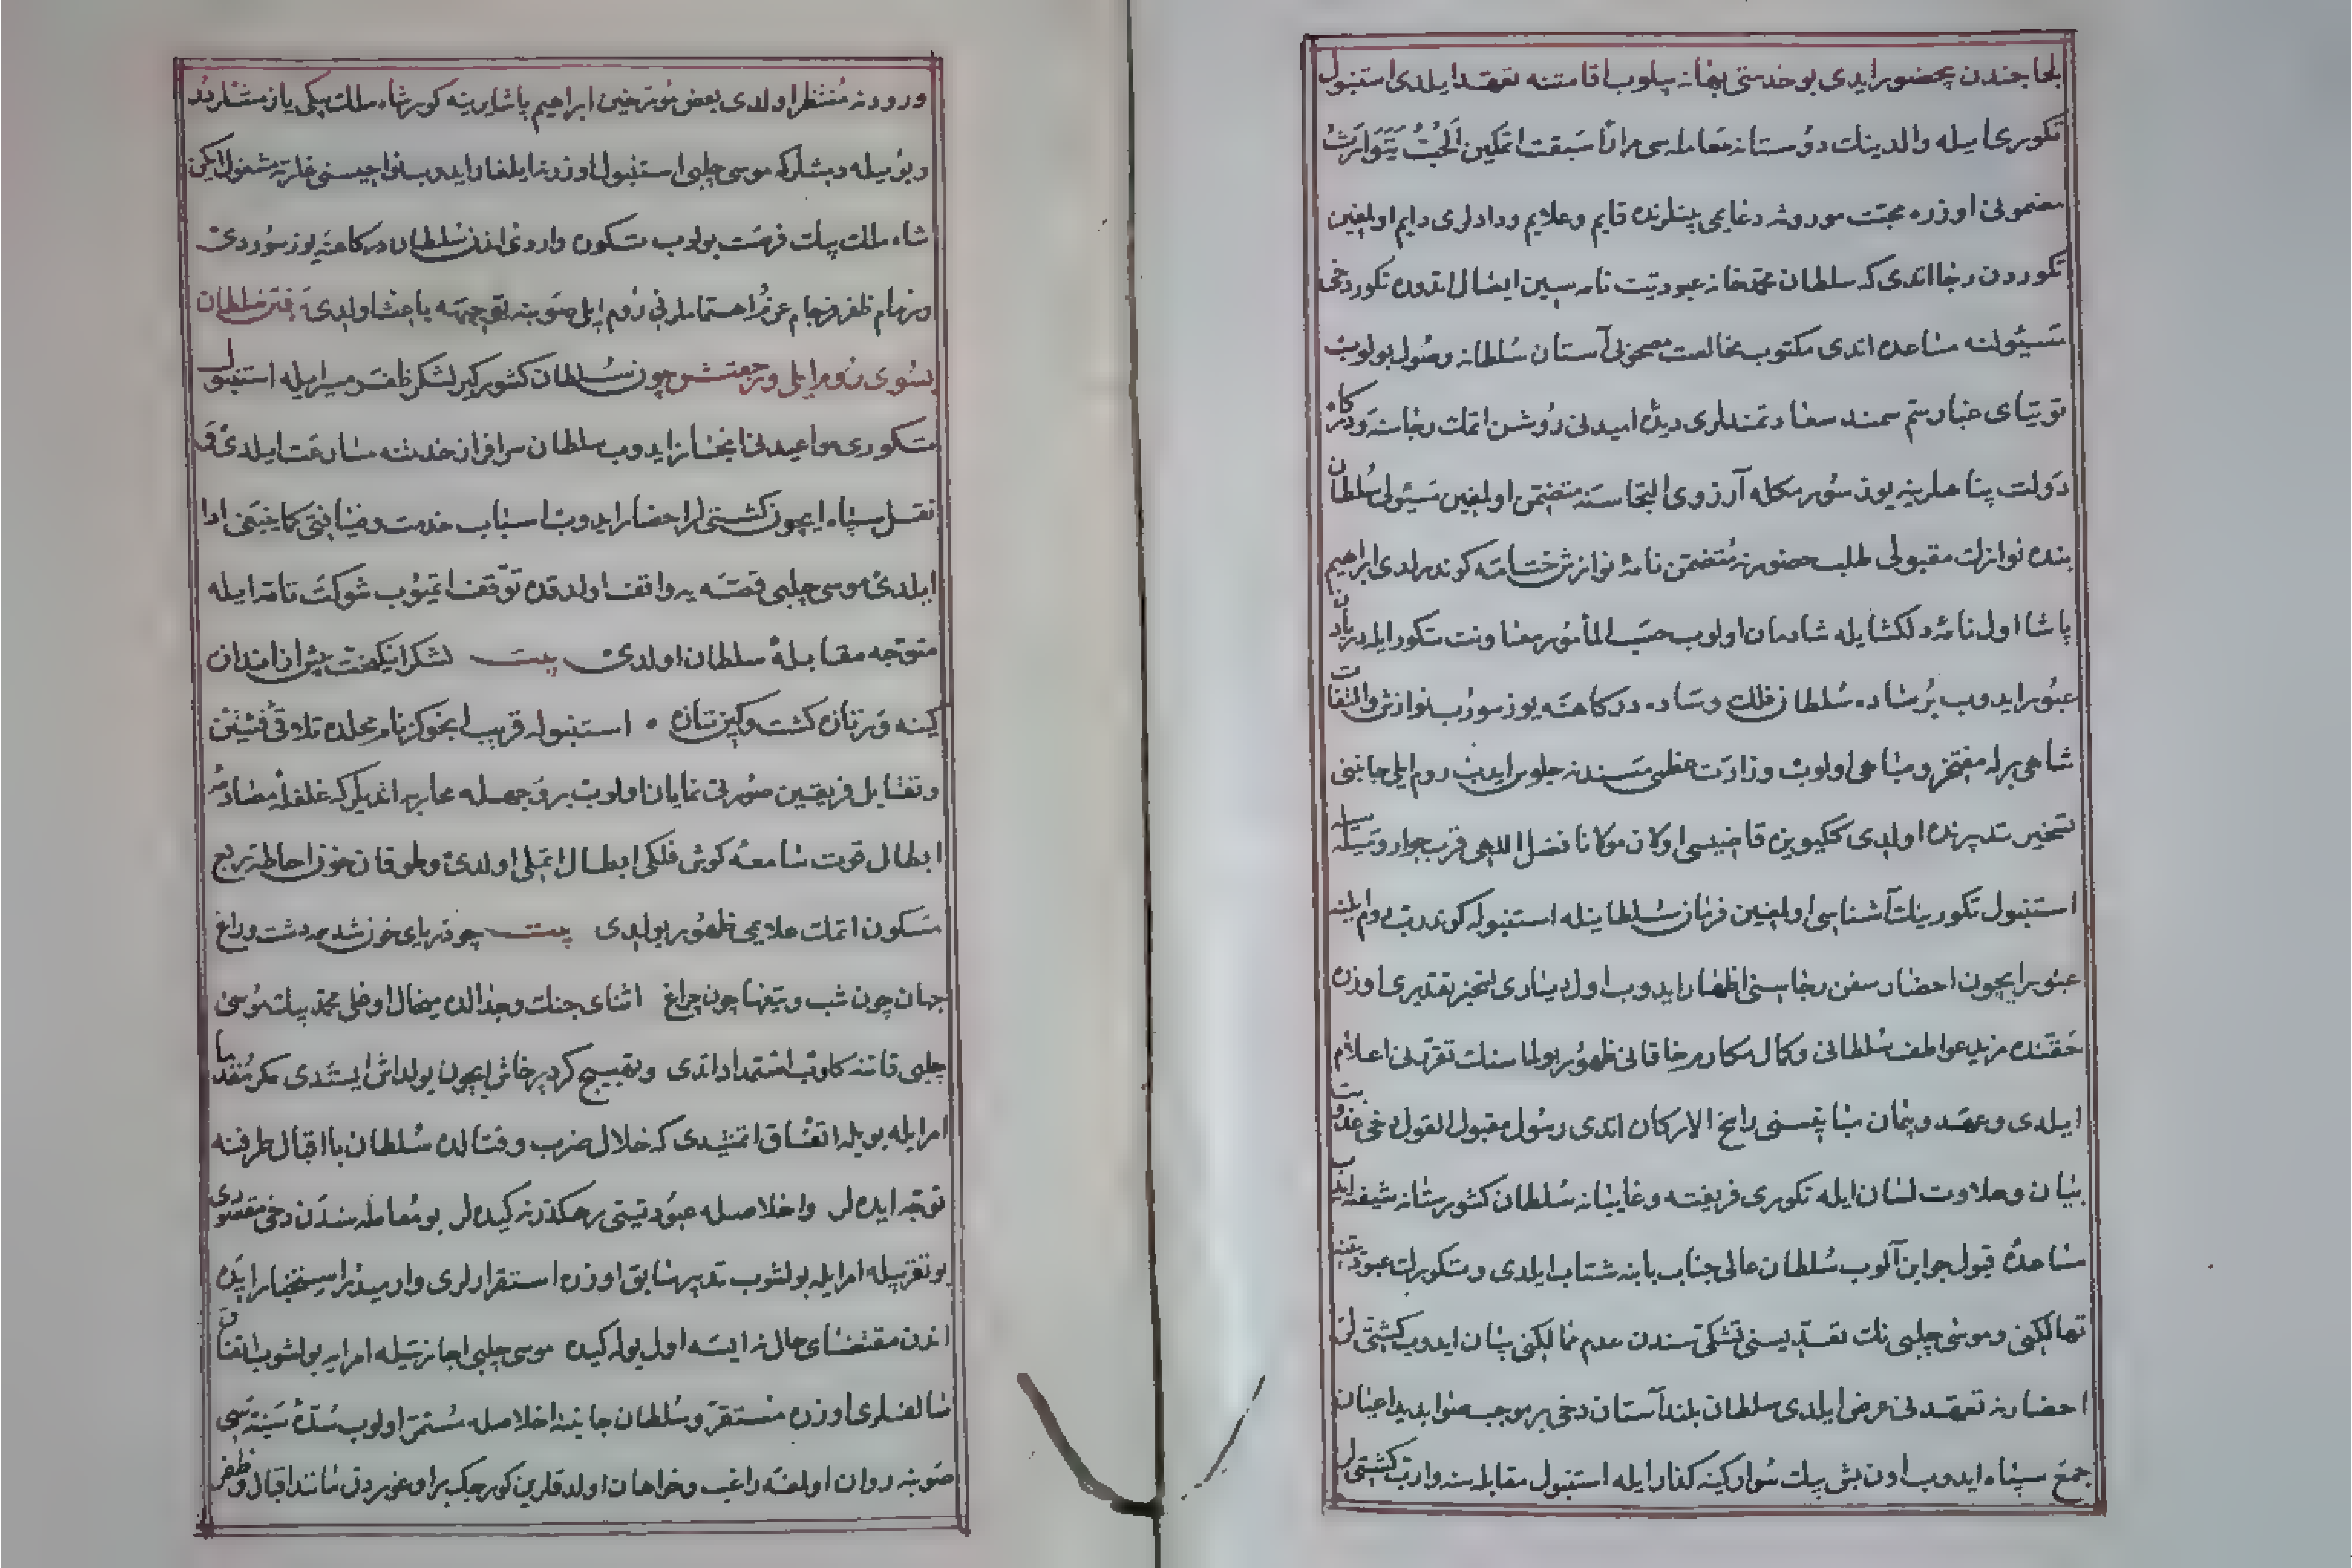 بلحاجندن بحضور ایدی بو خدمتی بهانه بیلوب اقامتنه تعهد ایلدی استنبول
تکوری ایله والدینك دوستانه معامله سی مرارًا سبقت اتمکین اَلْحُبُّ یَتَوَارَثُ
مضمونی اوزره محبت موروثه دعایمی بینلرنده قایم وعلایم ودادلری دایم اولمغین
تکوردن رجا اتدی که سلطان محمد خانه عبودیت نامه سین ایصال ایده تکور دخی
مسئولنه مساعده اتدی مکتوب مخالصت مصحوبی آستان سلطانه وصول بولوب
توتیای غبار سم سمند سعادتمندلری دیده امیدنی روشن اتمك رجاسنه ودرکاه
دولت پناهلرینه یوز سورمکله آرزوی التجاسنه متضمن اولمغین مسئولی سلطان
بنده نوازك مقبولی طلب حضورنه متضمن نامۀ نوازش ختامه کوندردی ابراهیم
پاشا اول نامۀ دلکشایله شادمان اولوب حسب المأمور معاونت تکور ایله دریادن
عبور ایدوب بُرسَاده سلطان فلك وساده درکاهنه یوز سوروب نوازش والتفات
شاهی برله مفتخر ومباهی اولوب وزارت عظمی مسندنه جلوس ایدب روم ایلی جانبنی
تسخیر تدبیرنده اولدی ککیویزه قاضیسی اولان مولانا فضل الله‌ی قرب جوار وسیله سیله
استنبول تکورینك آشناسی اولمغین فرمان سلطانیله استنبوله کوندرب روم ایلینه
عبور ایچون احضار سفن رجاسنی اظهار ایدوب اول دیاری تسخیر تقدیری اوزره
حقنده مزید عواطف سلطانی وکمال مکارم خاقانی ظهور بولماسنك تقربنی اعلام
ایلدی وعهد وپیمان بنا‌سنی راسخ الارکان اتدی رسول مقبول القول دخی عذوبت
بیان وحلاوت لسان ایله تکوری فریفته وغایبانه سلطان کشورستانه شیفته ایدب
مساعدۀ قبول جوابن آلوب سلطان عالی جناب بابنه شتاب ایلدی وتکورك عبودیتنه
تهالکنی وموسی چلبی نك تعدیسنی تشکی سندن عدم تمالکنی بیان ایدوب کشتی لر
احضارنه تعهدنی عرض ایلدی سلطان بلند آستان دخی بر موجب صوابدید اعیان
جمع سپاه ایدوب اون بش بیك سوار کینه کذار ایله استنبول مقابله سنه وارب کشتی لر
ورودنه مُنتظر اولدی بعض مورخین ابراهیم پاشا یرینه کور شاه ملك بیکی یازمشلردر
وبویله دیمشلرکه موسی چلبی استنبول اوزرنه ایلغار ایدوب نواحیسنی غارته مشغول ایکن
شاه ملك بیك فرصت بولوب تکوره واردی اندن سلطان درکاهنه یوز سوردی
وزمام ظفر فرجام عزم اهتماملرنی روم ایلی صوبنه توجهه باعث اولدی رفتن سلطان
بسوی روم ایلی ورجعتش چون سلطان کشورکیر لشکر ظفر مسیر ایله استنبول
تکوری مواعیدنی انجاز ایدوب سلطان سرافراز خدمتنه مسارعت ایلدی و
نقل سپاه ایچون کشتی لر احضار ایدوب اسباب خدمت وضیافتی کاینبغی ادا
ایلدی موسی چلبی قصه یه واقف اولدقده توقف اتمیوب شوکت تامه ایله
متوجه مقابلۀ سلطان اولدی بیت لشکر انکیخت بیش از اندازه
کینه ور تازه کشت وکین تازه ٠ استنبوله قریب انجوکز نام محلده تلاقی فئتین
وتقابل فریقین صورتی نمایان اولوب بر وجهله محاربه اتدیلرکه غلغلۀ مصادمۀ
ابطال قوت سامعۀ کوش فلکی ابطال اتملی اولدی وطوفان خون احاطۀ ربع
مسکون اتمك علایمی ظهور بولدی بیت چو دریای خون شد همه دشت وراغ
جهان چون شب وتیغها چون چراغ اثنای جنك وجدالده میخال اوغلی محمد بیك موسی
چلبی قاتنه کلوب استمداد اتدی وتقبیح کرد پرخاش ایچون یولداش ایستدی مکر مقدما
امرا ایله بویله اتفاق اتمشدی که خلال ضرب وقتالده سلطان با اقبال طرفنه
توجه ایده لر واخلاصله عبودیتی رهکذرنه کیده لر بو معامله سندن دخی مقصودی
بو تقریبیله امرا ایله بولشوب تدبیر سابق اوزره استقرارلری وار میدر استخبار ایده
اندن مقتضای حال نه ایسه اول یوله کیده موسی چلبی اجازتیله امرایه بولشوب اتفاق
سالفلری اوزره مستقر وسلطان جانبنه اخلاصله مستمر اولوب سدۀ سنیه سی
صوبنه روان اولمغه راغب وخواهان اولدقلرین کورجك براوغوردن مانند اقبال وظفر